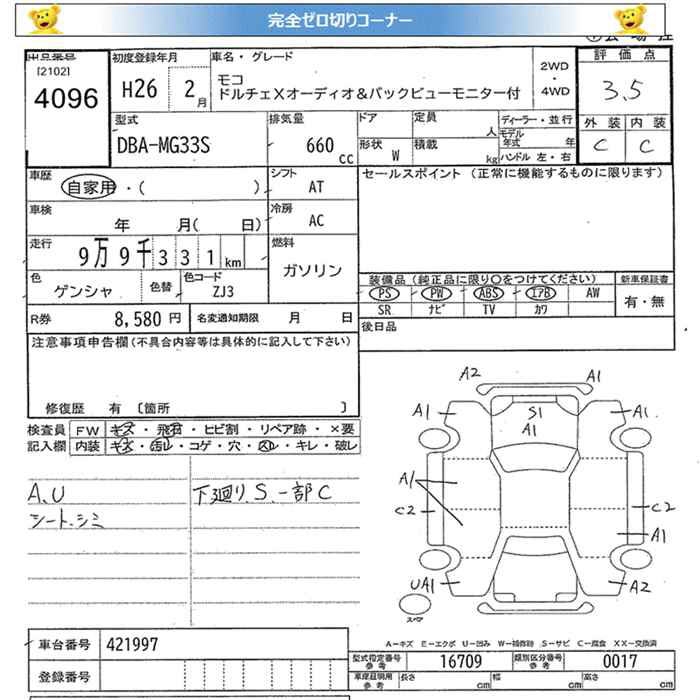 完全ゼロ切りコーナー
出品番号
[2102]
4096
初度登録年月
H26 2月
車名・グレード
モコ
ドルチェXオーディオ&バックビューモニター付
2WD
・
4WD
評価点
3.5
外装 内装
C C
型式
DBA-MG33S
排気量
660 cc
ドア
定員
人
形状
W
積載
kg
ディーラー・並行
モデル
年式 年
ハンドル 左・右
車歴
自家用・( )
シフト
AT
セールスポイント (正常に機能するものに限ります)
車検
年 月( 日)
冷房
AC
走行
9万9千331km
燃料
ガソリン
色
ゲンシャ
色替
色コード
ZJ3
装備品 (純正品に限り○をつけてください)
新車保証書
PS PW ABS エアB AW
SR ナビ TV カワ
有・無
R券 8,580 円
名変通知期限 月 日
後日品
注意事項申告欄 (不具合内容等は具体的に記入して下さい)
修復歴 有 〔箇所 〕
検査員
記入欄
FW キズ・飛石・ヒビ割・リペア跡・×要
内装 キズ・汚レ・コゲ・穴・スレ・キレ・破レ
A,U
シート、シミ
下廻り S、一部C
A2
A1
A1
S1
A1
A1
A1
C2
C2
A1
UA1
A2
スペア
A-キズ E-エクボ U-凹み W-補修跡 S-サビ C-腐食 XX-交換済
車台番号 421997
登録番号
型式指定番号
参考
16709
類別区分番号
参考
0017
車庫証明用
参考
長さ cm
幅 cm
高さ cm